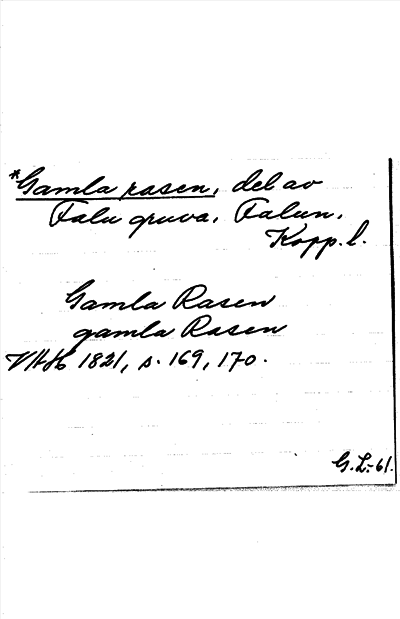 *Gamla rasen, del av
Falu gruva, Falun,
Kopp. l.
Gamla Rasen
gamla Rasen
VAH 1821, s. 169, 170.
G.L.-61.